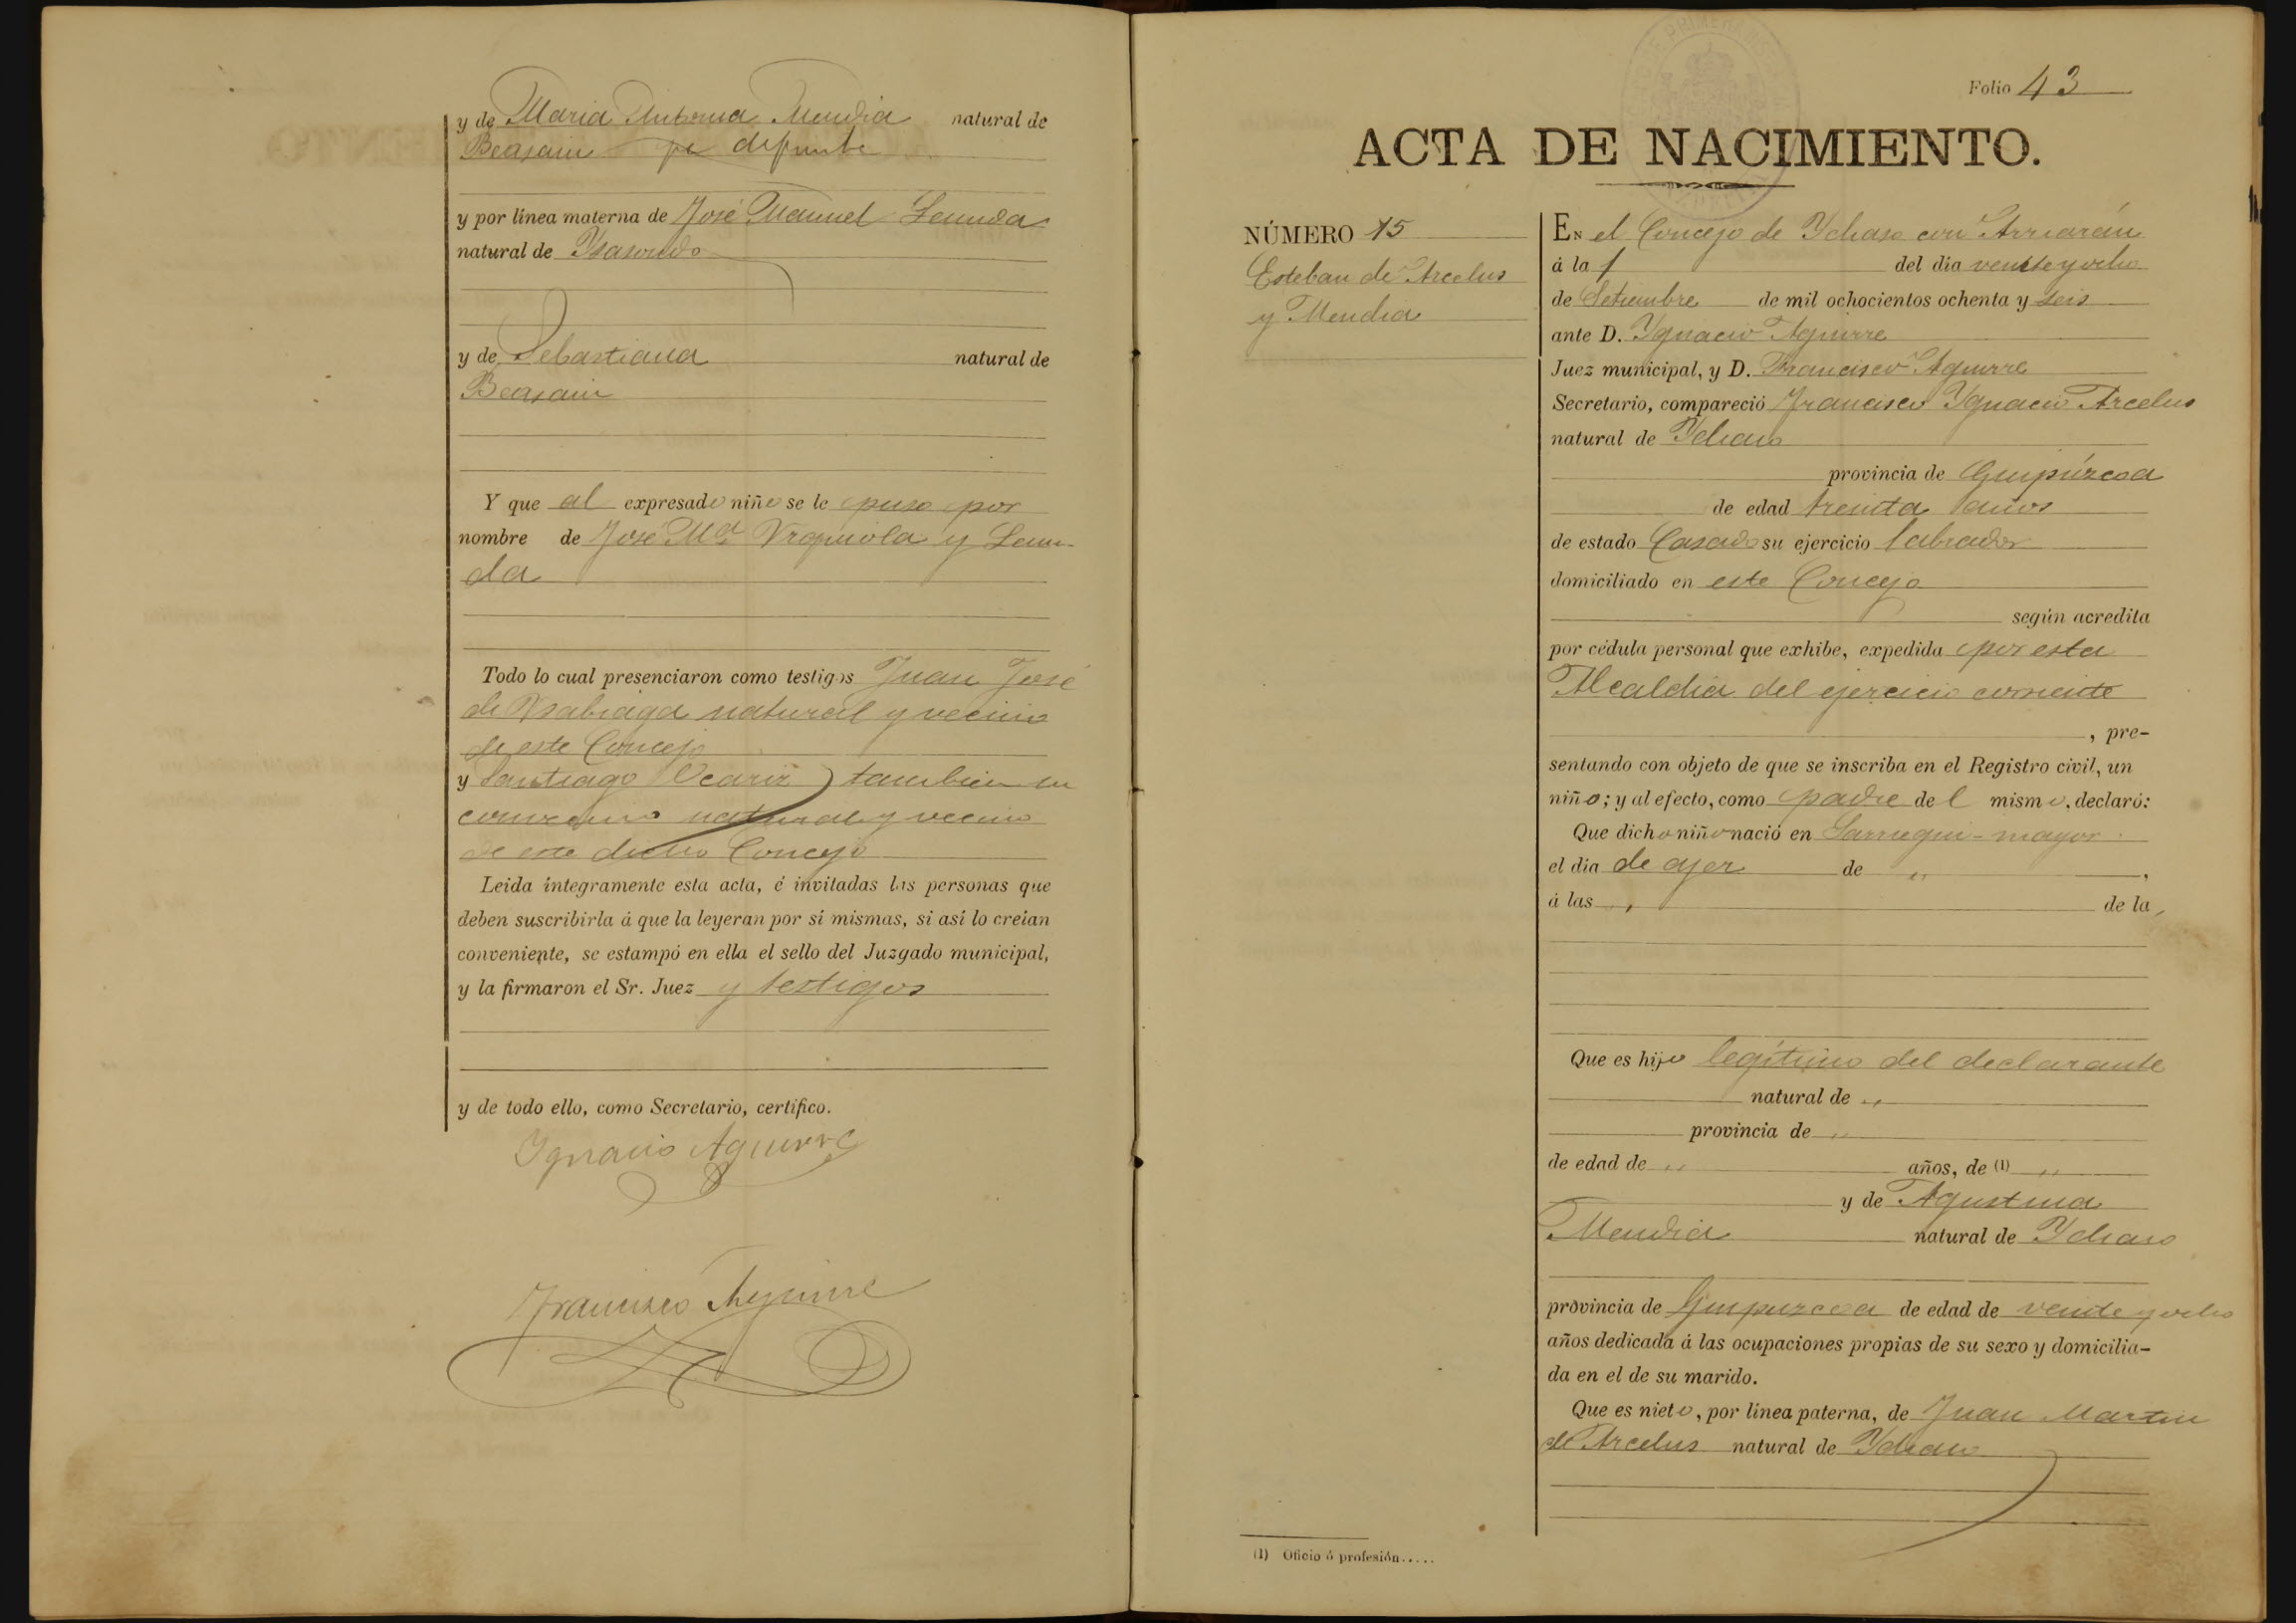 y de Maria Antonia Mendia natural de
Beasain ya difunta
y por línea materna de José Manuel Lasunda
natural de Ysasondo
y de Sebastiana natural de
Beasain
Y que al expresado niño se le puso por
nombre de José Mª Urquiola y
da
Todo lo cual presenciaron como testigos Juan José
de Ysabiaga natural y vecino
de este Concejo
y Santiago Ocariz también su
convecino natural y vecino
de este dicho Concejo
Leida íntegramente esta acta, é invitadas las personas que
deben suscribirla á que la leyeran por sí mismas, si así lo creían
conveniente, se estampó en ella el sello del Juzgado municipal,
y la firmaron el Sr. Juez y testigos
y de todo ello, como Secretario, certifico.
Ygnacio Aguirre
Francisco Aguirre
Folio 43
ACTA DE NACIMIENTO.
NÚMERO 15
Esteban de Arcelus
y Mendia
EN el Concejo de Ychaso con Arriarán
á la 1 del día veinte y ocho
de Setiembre de mil ochocientos ochenta y seis
ante D. Ygnacio Aguirre
Juez municipal, y D. Francisco Aguirre
Secretario, compareció Francisco Ygnacio Arcelus
natural de Ychaso
provincia de Guipúzcoa
de edad treinta años
de estado Casado su ejercicio labrador
domiciliado en este Concejo
según acredita
por cédula personal que exhibe, expedida por esta
Alcaldia del ejercicio corriente
, pre-
sentando con objeto de que se inscriba en el Registro civil, un
niño; y al efecto, como padre del mismo, declaró:
Que dicho niño nació en Sarregui-mayor
el día de ayer de "
á las " de la "
Que es hijo legítimo del declarante
natural de "
provincia de "
de edad de " años, de (1) "
y de Agustina
Mendia natural de Ychaso
provincia de Guipuzcoa de edad de veinte y ocho
años dedicada á las ocupaciones propias de su sexo y domicilia-
da en el de su marido.
Que es nieto, por línea paterna, de Juan Martin
de Arcelus natural de Ychaso
(1) Oficio ó profesión.....